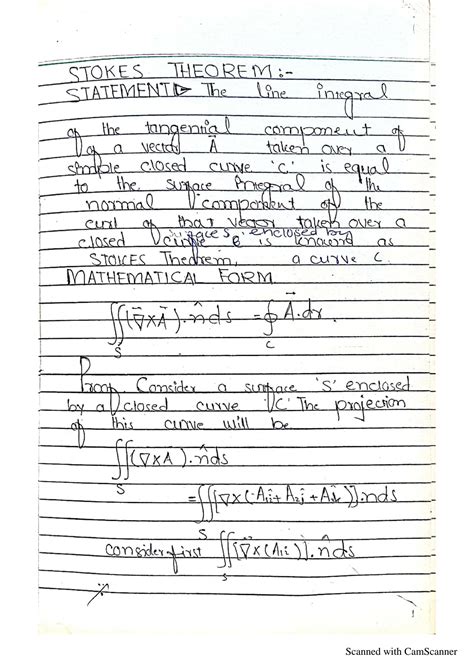 STOKES THEOREM:-
STATEMENT The line integral
of the tangential component of
of a vector A⃗ taken over a
simple closed curve 'C' is equal
to the surface integral of the
normal component of the
curl of that vector taken over a
surface S, enclosed by
closed curve is known as
STOKES Theorem, a curve C.
MATHEMATICAL FORM
∬(∇⃗xA⃗).n̂ds = ∮A⃗.dr.
S C
Proof. Consider a surface 'S' enclosed
by a closed curve 'C' The projection
of this curve will be
∬(∇xA).n̂ds
S
=∬[∇x(A₁i+A₂j+A₃k)].nds
S
consider first ∬[∇⃗x(A₁i)].n̂ds
S
Scanned with CamScanner